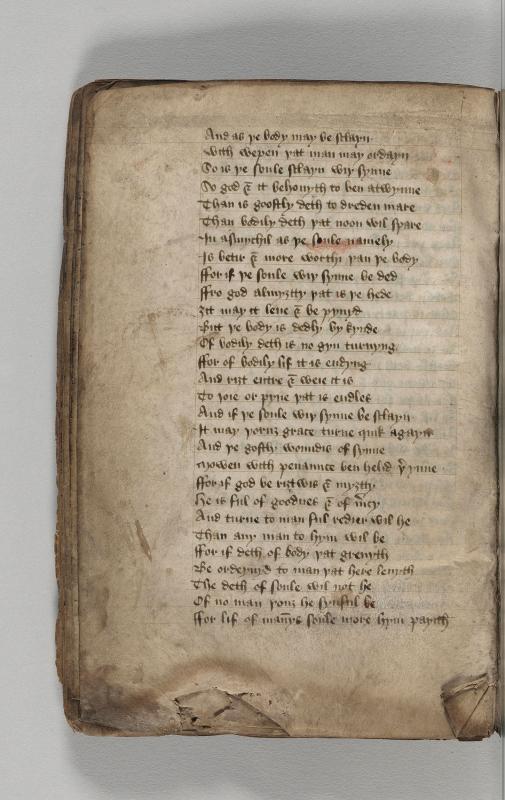 And as þe body may be sclayn
With wepen þat man may ordayn
So is þe soule sclayn wiþ synne
So god & it behouyth to ben atwynne
Than is goostly deth to dreden mare
Than bodily deth þat noon wil spare
In asmychil as þe soule namely
Is betir & more worthi þan þe body
ffor if þe soule wiþ synne be ded
ffro god almyȝtty þat is þe hede
ȝit may it leue & be pynyd
But þe body is dedly by kynde
Of bodily deth is no gyn turnyng
ffor of bodily lif it is endyng
And riȝt entre & weie it is
To ioie or pyne þat is endles
And if þe soule wiþ synne be sclayn
It may þoruȝ grace turne quik agayn
And þe gostly woundis of synne
Mowen with penaunce ben helid þ̉ynne
ffor if god be riȝtwis & myȝtty
He is ful of goodnes & of m̉cy
And turne to man ful redier wil he
Than any man to hym wil be
ffor if deth of body þat greuyth
Be ordeynyd to man þat here leuyth
The deth of soule wil not he
Of no man þouȝ he synful be
ffor lif of mannys soule more hym payith